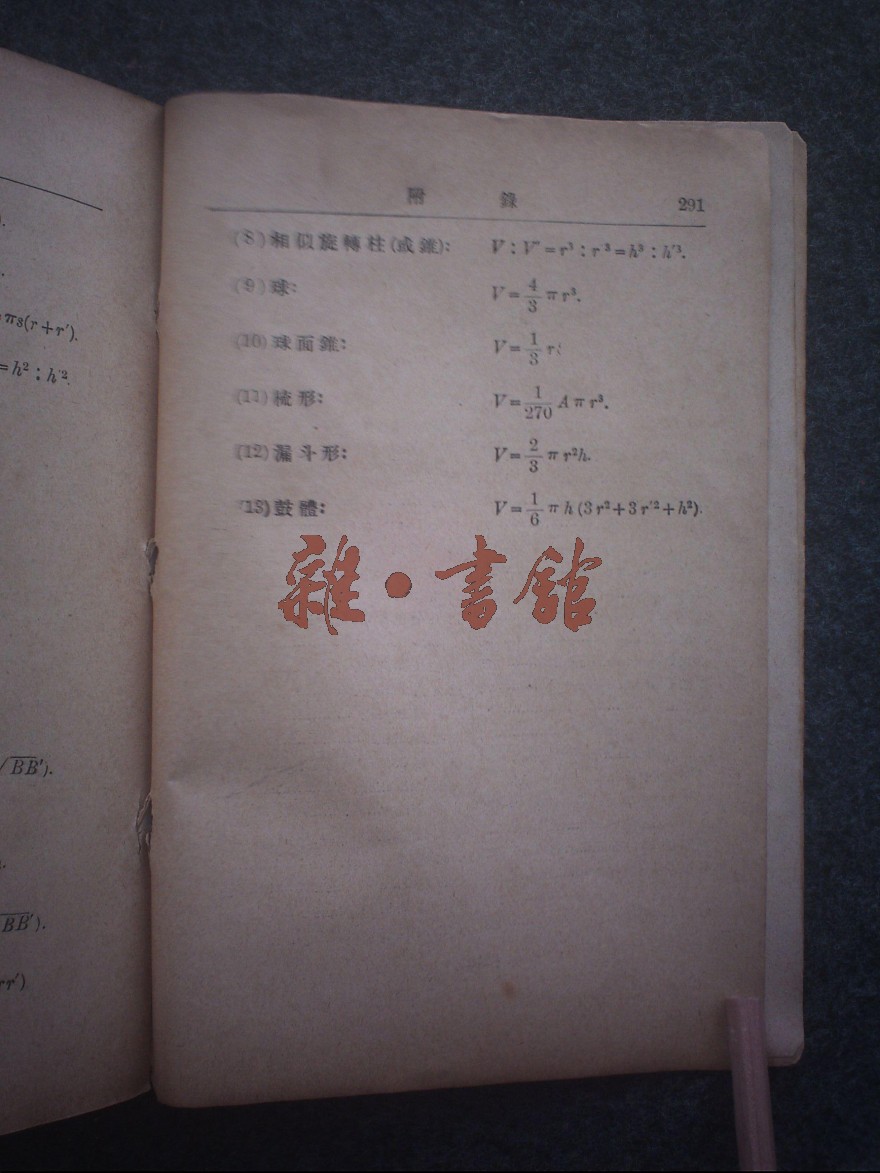 ).
.
πs(r+r′).
=h²:h′².
√BB′).
.
BB′).
rr′)
附 錄 291
(8)相似旋轉柱(或錐): V:V′=r³:r′³=h³:h′³.
(9)球: V=4/3 πr³.
(10)球面錐: V=1/3 r
(11)梳形: V=1/270 Aπr³.
(12)漏斗形: V=2/3 πr²h.
(13)鼓體: V=1/6 πh(3r²+3r′²+h²).
雜·書館